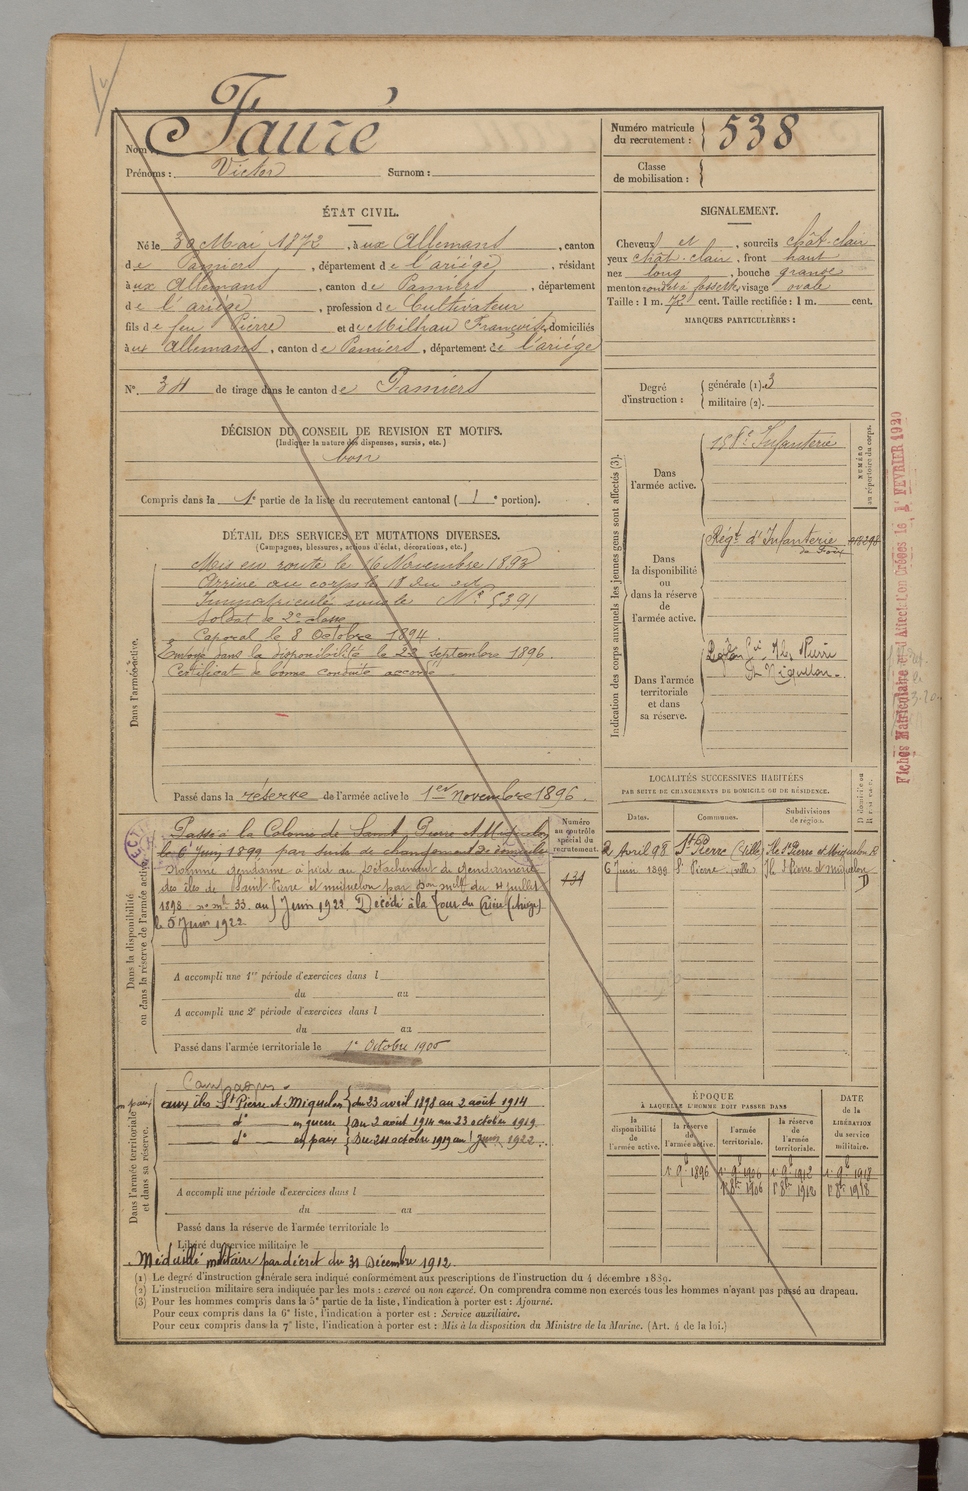 Fauré
Nom :
Prénoms : Victor Surnom :
Numéro matricule du recrutement : 538
Classe de mobilisation :
ÉTAT CIVIL.
Né le 30 Mai 1872, à ux Allemans, canton
de Pamiers, département de l'ariège, résidant
à ux Allemans, canton de Pamiers, département
de l'ariège, profession de Cultivateur
fils de feu Pierre et de Milhau Françoise, domiciliés
à ux Allemans, canton de Pamiers, département de l'ariège
N° 34 de tirage dans le canton de Pamiers
SIGNALEMENT.
Cheveux et, sourcils chât-clair
yeux chât-clair, front haut
nez long, bouche grande
menton rond et à fossette, visage ovale
Taille : 1 m. 72 cent. Taille rectifiée : 1 m. cent.
MARQUES PARTICULIÈRES :
Degré d'instruction :
générale (1). 3
militaire (2).
DÉCISION DU CONSEIL DE REVISION ET MOTIFS.
(Indiquer la nature des dispenses, sursis, etc.)
bon
Compris dans la 1e partie de la liste du recrutement cantonal ( 1e portion).
DÉTAIL DES SERVICES ET MUTATIONS DIVERSES.
(Campagnes, blessures, actions d'éclat, décorations, etc.)
Dans l'armée active.
Mis en route le 16 Novembre 1893
Arrivé au corps le 18 du dit
Immatriculé sous le N° 5391
Soldat de 2e classe
Caporal le 8 Octobre 1894.
Envoyé dans la disponibilité le 22 septembre 1896.
Certificat de bonne conduite accordé
Passé dans la réserve de l'armée active le 1er novembre 1896.
Indication des corps auxquels les jeunes gens sont affectés (3).
NUMÉRO au répertoire du corps.
Dans l'armée active.
158e Infanterie
Dans la disponibilité ou dans la réserve de l'armée active.
Régt d'Infanterie
de Foix
Dans l'armée territoriale et dans sa réserve.
St Pierre
et Miquelon.
Fiches Matriculaire et d'Affectation Créées le 1er FEVRIER 1920
Dans la disponibilité ou dans la réserve de l'armée active.
Numéro au contrôle spécial du recrutement.
Passé à la Colonie de Saint Pierre et Miquelon
le 6 Juin 1899 par suite de changement de domicile
Nommé gendarme à pied au Détachement de gendarmerie
des îles de Saint Pierre et miquelon par Don mille du 4 juillet
1898 no mle 33. au 1 Juin 1922. Décédé à la Tour du Crieu (Ariège)
le 5 Juin 1922
434
A accompli une 1re période d'exercices dans l
du au
A accompli une 2e période d'exercices dans l
du au
Passé dans l'armée territoriale le 1er Octobre 1906
LOCALITÉS SUCCESSIVES HABITÉES
PAR SUITE DE CHANGEMENTS DE DOMICILE OU DE RÉSIDENCE.
Dates. Communes. Subdivisions de région. D domicile ou R résidence.
2 Avril 98 St Pierre (ville) Ile St Pierre et Miquelon R
6 juin 1899 St Pierre (ville) Ile St Pierre et Miquelon D
Dans l'armée territoriale et dans sa réserve.
Campagnes.
en paix aux îles St Pierre et Miquelon du 23 avril 1898 au 2 août 1914
do en guerre du 2 août 1914 au 23 octobre 1919
do en paix du 24 octobre 1919 au 1 Juin 1922.
A accompli une période d'exercices dans l
du au
Passé dans la réserve de l'armée territoriale le
Libéré du service militaire le
Médaillé militaire par décret du 31 Décembre 1912.
ÉPOQUE
À LAQUELLE L'HOMME DOIT PASSER DANS
la disponibilité de l'armée active.
la réserve de l'armée active.
l'armée territoriale.
la réserve de l'armée territoriale.
DATE de la LIBÉRATION du service militaire.
1er 9bre 1896 1er 9bre 1906 1er 9bre 1912 1er 9bre 1918
1er 8bre 1906 1er 8bre 1912 1er 8bre 1918
(1) Le degré d'instruction générale sera indiqué conformément aux prescriptions de l'instruction du 4 décembre 1889.
(2) L'instruction militaire sera indiquée par les mots : exercé ou non exercé. On comprendra comme non exercés tous les hommes n'ayant pas passé au drapeau.
(3) Pour les hommes compris dans la 5e partie de la liste, l'indication à porter est : Ajourné.
Pour ceux compris dans la 6e liste, l'indication à porter est : Service auxiliaire.
Pour ceux compris dans la 7e liste, l'indication à porter est : Mis à la disposition du Ministre de la Marine. (Art. 4 de la loi.)